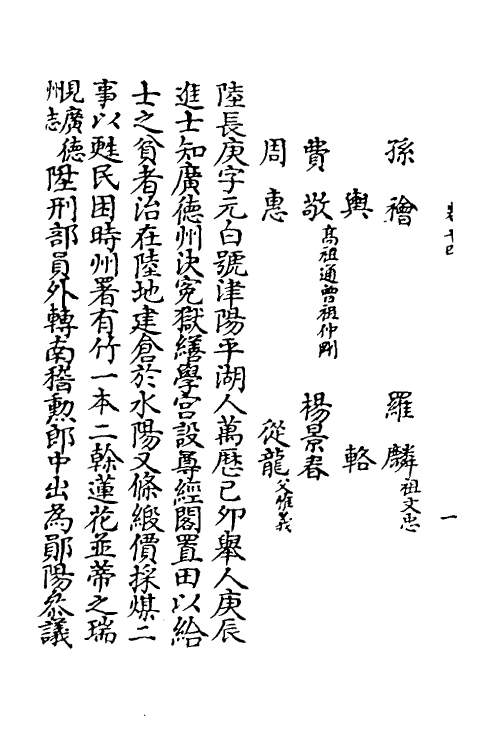 卷十四
一
孫禬　羅麟祖文忠
輿　輅
費敬高祖通曾祖仲剛　楊景春
周惠　從龍父惟義
陸長庚字元白號津陽平湖人萬歷己卯舉人庚辰
進士知廣德州決冤獄繕學宮設尊經閣置田以給
士之貧者治在陸地建倉於水陽又條緞價採煤二
事以甦民困時州署有竹一本二榦蓮花並蒂之瑞
見廣德州志陞刑部員外轉南稽勲郎中出為鄖陽叅議